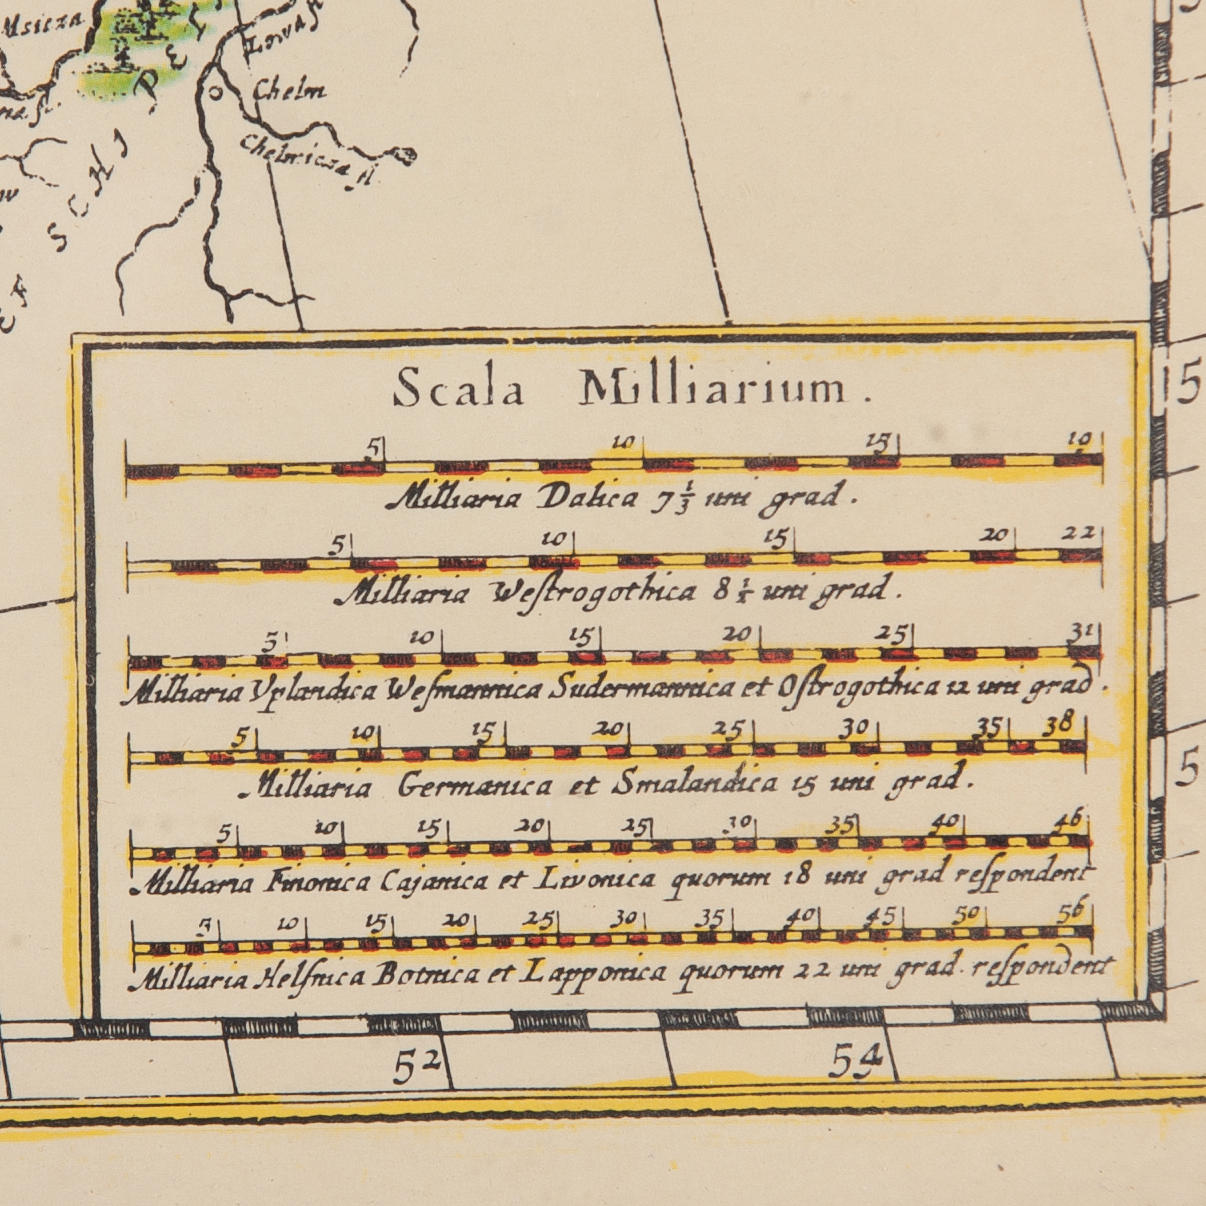 Msicza
Lovas
PET
Chelm
Chelmicza fl.
SCHI
5
Scala Milliarium.
5 10 15 10
Milliaria Dalica 7 1/3 uni grad.
5 10 15 20 22
Milliaria Weſtrogothica 8 uni grad.
5 10 15 20 25 31
Milliaria Vplandica Weſmannica Sudermannica et Oſtrogothica 12 uni grad.
5 10 15 20 25 30 35 38
Milliaria Germanica et Smalandica 15 uni grad.
5 10 15 20 25 30 35 40 46
Milliaria Finonica Cajanica et Livonica quorum 18 uni grad reſpondent
5
5 10 15 20 25 30 35 40 45 50 56
Milliaria Helſnica Botnica et Lapponica quorum 22 uni grad. reſpondent
52 54